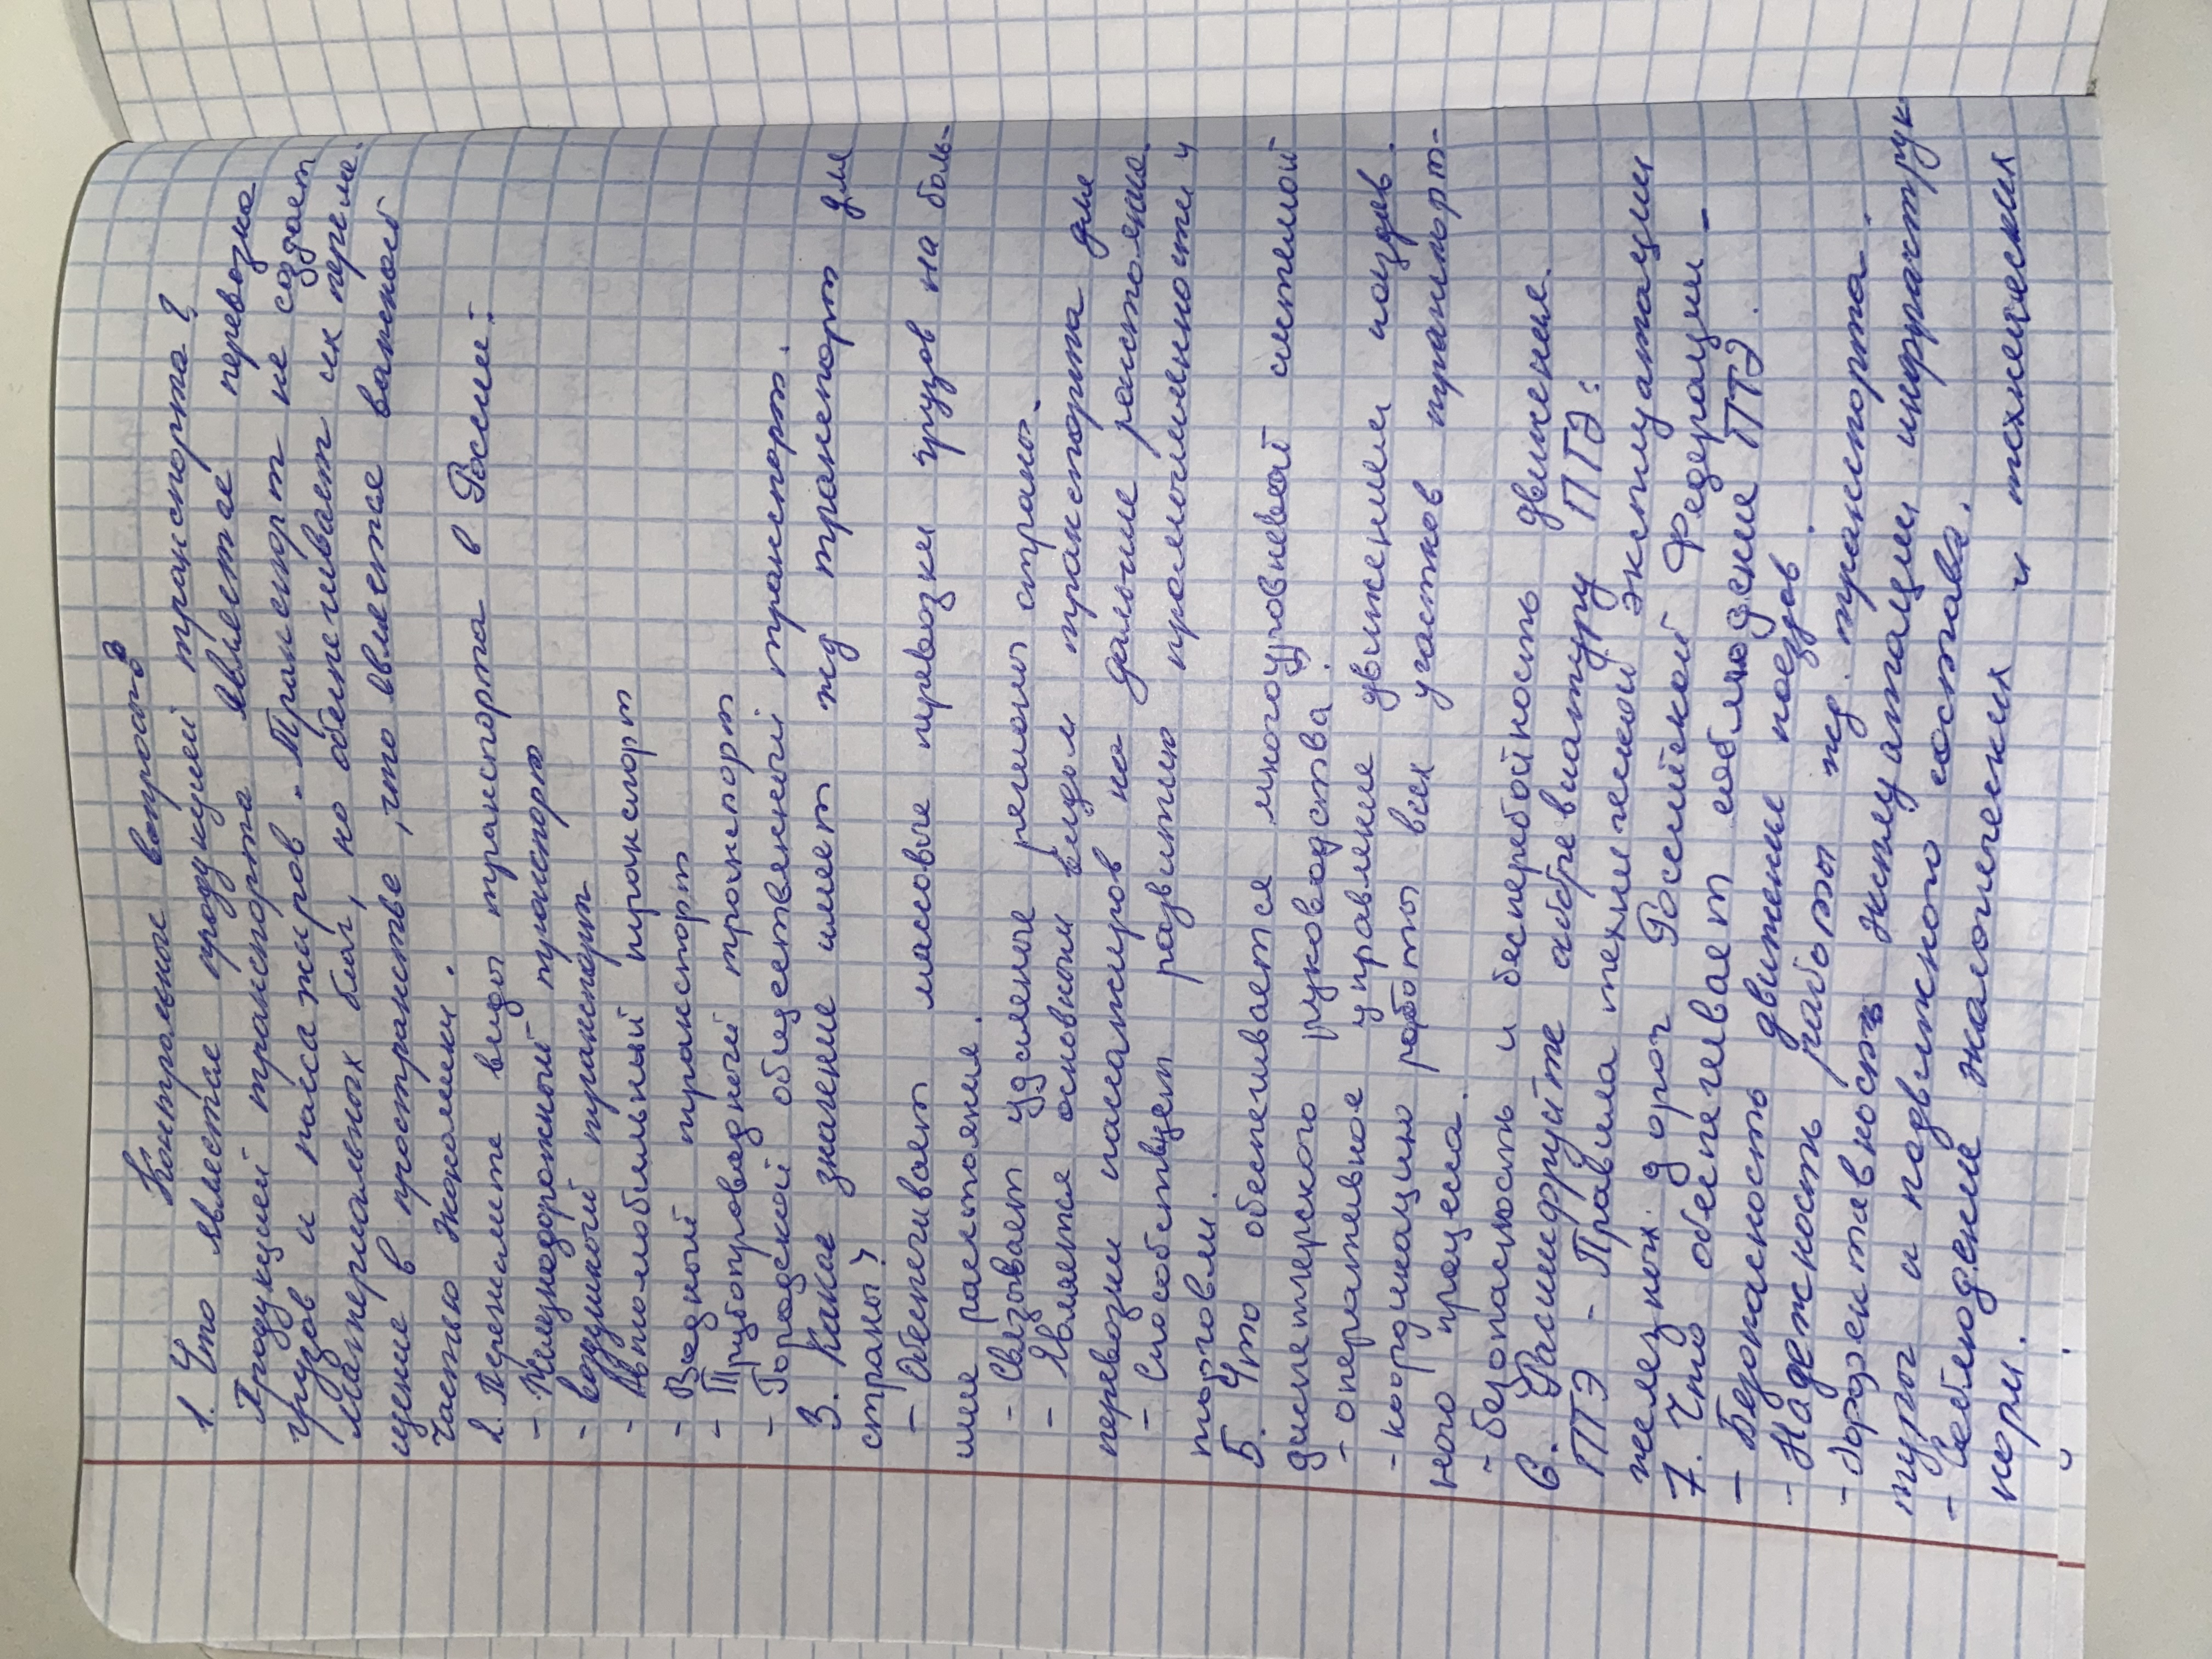 Контрольные вопросы
1. Что является продукцией транспорта?
Продукцией транспорта является перевозка
грузов и пассажиров. Транспорт не создает
материальных благ, но обеспечивает их переме-
щение в пространстве, что является важной
частью экономики.
2. Перечислите виды транспорта в России:
- Железнодорожный транспорт
- воздушный транспорт
- Автомобильный транспорт
- Водный транспорт
- Трубопроводный транспорт
- Городской общественный транспорт.
3. Какое значение имеет жд транспорт для
страны?
- Обеспечивает массовые перевозки грузов на боль-
шие расстояния.
- Связывает удаленные регионы страны.
- Является основным видом транспорта для
перевозки пассажиров на дальние расстояния.
- Способствует развитию промышленности и
торговли.
5. Что обеспечивается многоуровневой системой
диспетчерского руководства?
- оперативное управление движением поездов.
- координацию работы всех участков транспорт-
ного процесса.
- безопасность и бесперебойность движения.
6. Расшифруйте аббревиатуру ПТЭ?
ПТЭ - Правила технической эксплуатации
железных дорог Российской Федерации -
7. Что обеспечивает соблюдение ПТЭ.
- Безопасность движение поездов.
- Надежность работы жд. транспорта.
- эксплуатации инфраструк
туры и подвижного состава.
- Соблюдение экологических и технических
норм.